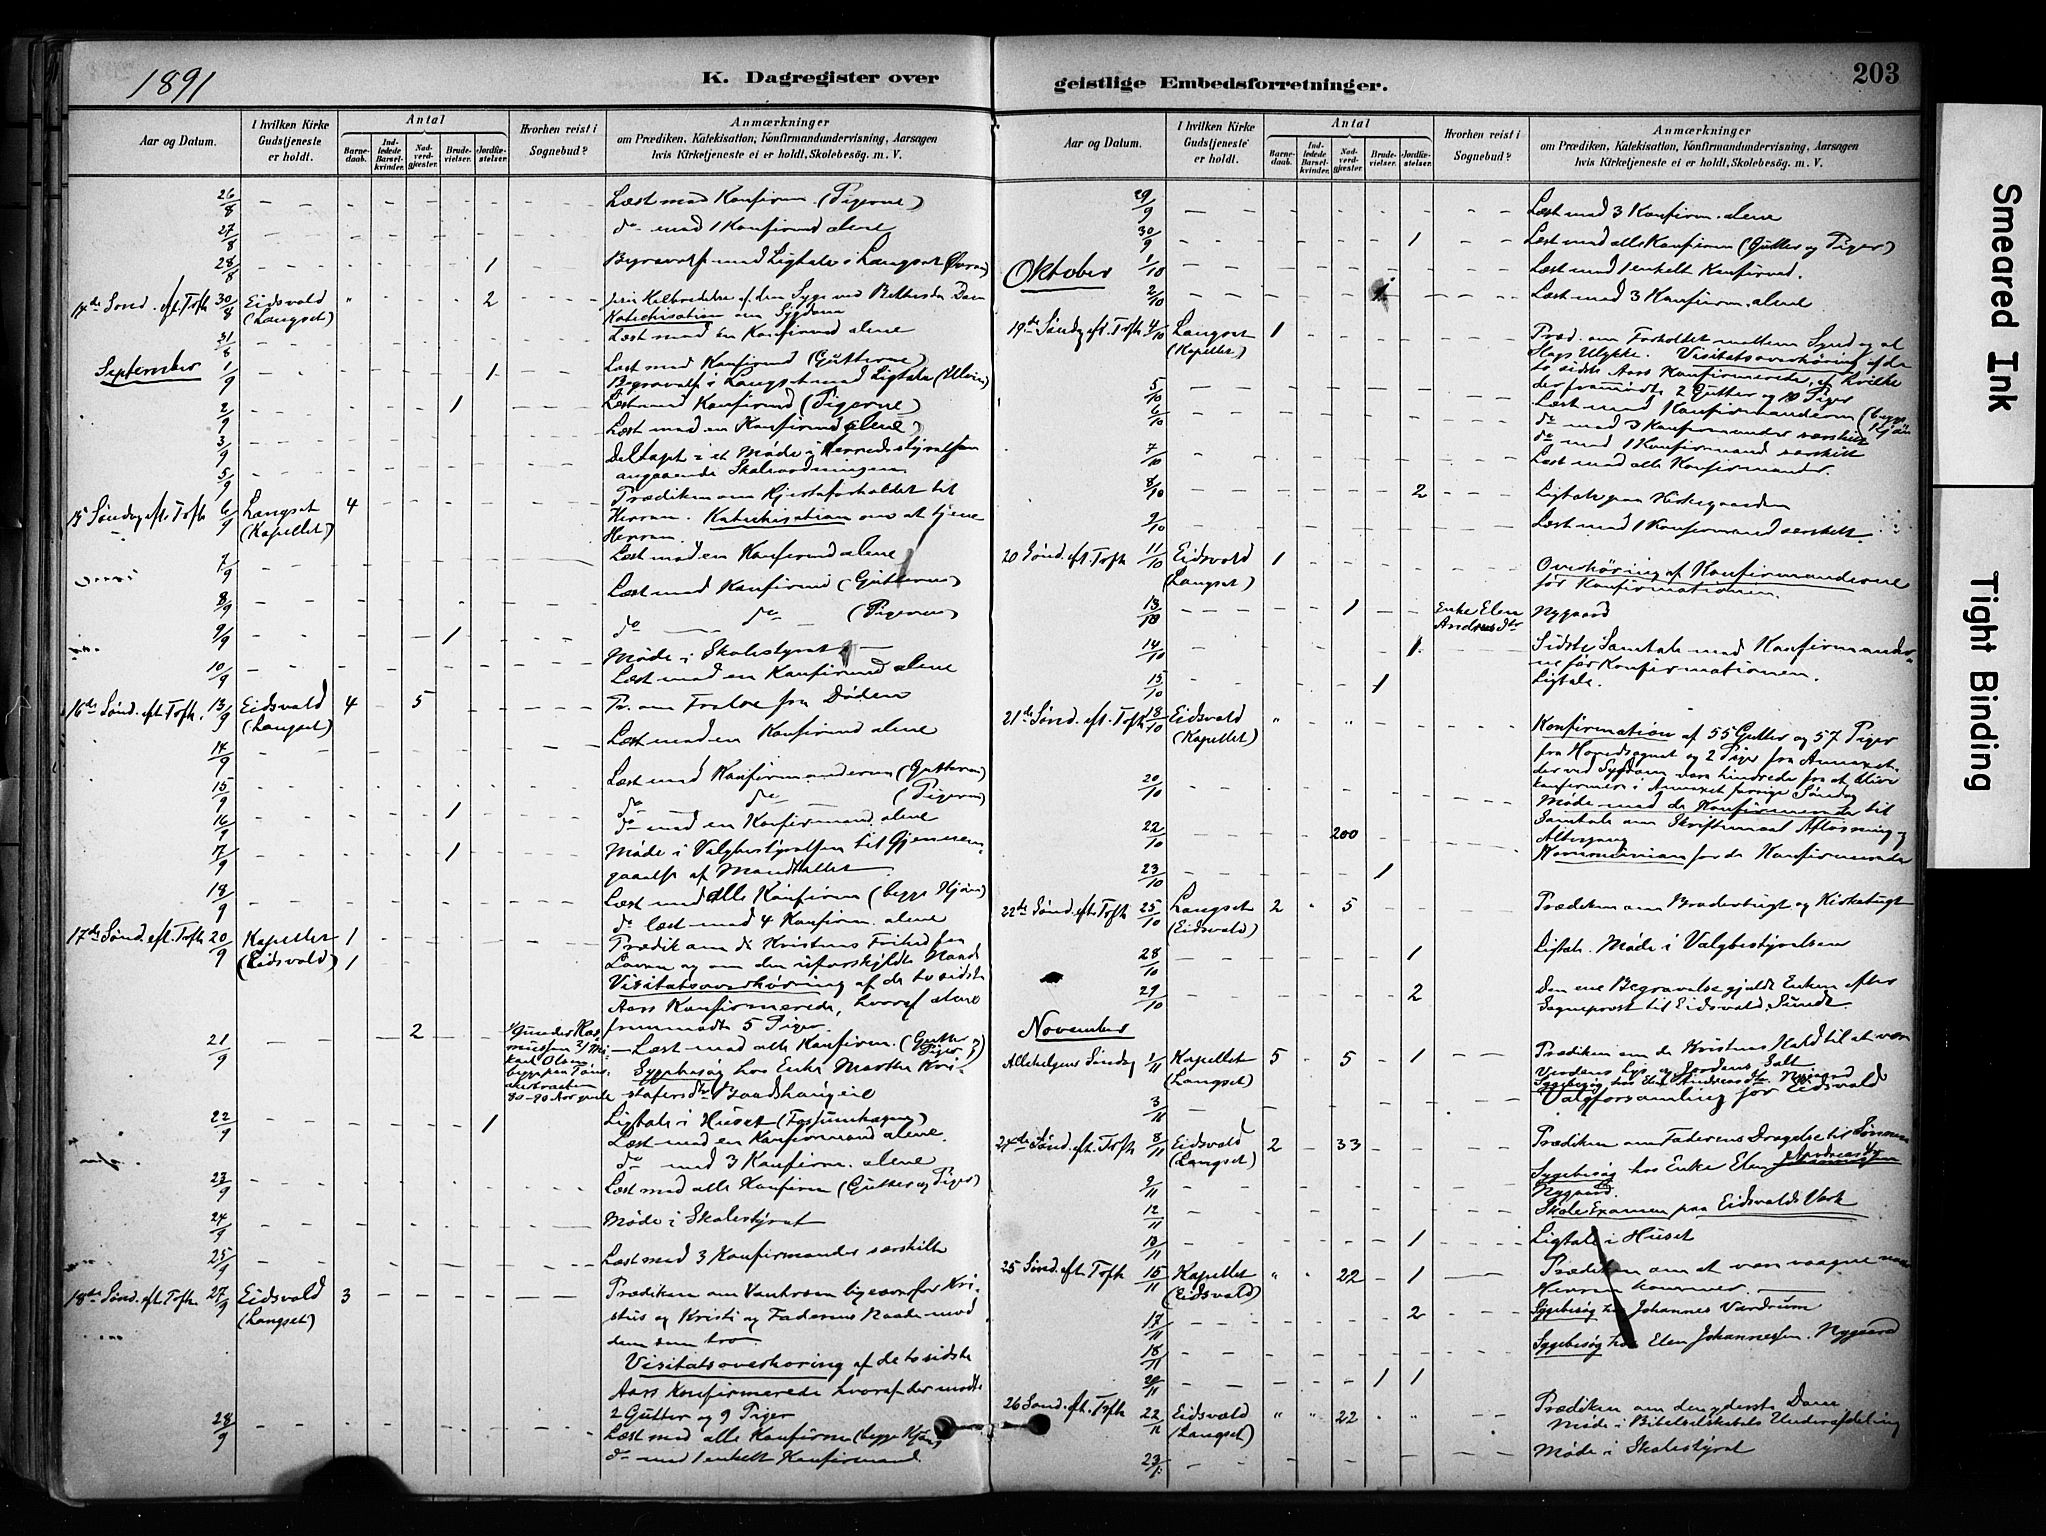 1891
K. Dagregister over
geistlige Embedsforretninger.
203
Aar og Datum.
I hvilken Kirke Gudstjeneste er holdt.
Antal
Barnedaab.
Indledede Barselkvinder.
Nadverdgjester.
Brudevielser.
Jordfæstelser.
Hvorhen reist i Sognebud?
Anmærkninger
om Prædiken, Katekisation, Konfirmandundervisning, Aarsagen
hvis Kirketjeneste ei er holdt, Skolebesög. m. V.
26/8 Læst med Konfirm. (Pigerne)
27/8 do med 1 Konfirmd alene
28/8 1
14de Sønd. eft. Trftk 30/8 Eidsvald (Langset) " 2
Katechisation om Sygdom
31/8 Læst med en Konfirmd alene
September 1/9 1 Læst med Konfirmd (Gutterne)
2/9 1 Læst med Konfirmd (Pigerne)
Læst med en Konfirmd alene
3/9 Deltaget i et Møde i Herredsstyrelsen
5/9 angaaende Skoleordningen
15 Søndag eft. Trftk 6/9 Langset (Kapellet) 4 Prædiken om Hjerteforholdet til
Herren. Katechisation om at tjene
Herren.
7/9 Læst med en Konfirmd alene
8/9 Læst med Konfirmd (Gutterne)
9/9 1 do do (Pigerne)
10/9 Møde i Skolestyret
Læst med en Konfirmd alene
16de Sønd. eft. Trftk. 13/9 Eidsvald (Langset) 4 - 5 Pr. om Frelse fra Døden
14/9 Læst med en Konfirmd alene
15/9 Læst med Konfirmanderne (Gutterne)
16/9 1 do do (Pigerne)
do med en Konfirmand alene
17/9 1 Møde i Valgbestyrelsen til Gjennem-
gaaelse af Mandtallet
18/9 Læst med alle Konfirm (begge Kjøn)
do læst med 4 Konfirm. alene
17de Sønd. eft. Trftk 20/9 Kapellet (Eidsvald) 1 1 Prædik om de Kristnes Frihed fra
Loven og om den uforskyldte Naade
Visitatsoverhøring af de to sidste
Aars Konfirmerede, hvoraf alene
fremmødte 5 Piger.
21/9 2 Læst med alle Konfirm. (Gutter & Piger)
Sygebesøg hos Enke Marthe Kri-
22/9 1 Ligtale i Huset
Læst med en Konfirmand alene.
do med 3 Konfirm. alene
23/9 Læst med alle Konfirm (Gutter og Piger)
24/9 Møde i Skolestyret
25/9 Læst med 3 Konfirmander særskilt
18de Sønd. eft. Trftk 27/9 Eidsvald (Langset) 3
stus og Kristi og Faderens Naade mod
dem som tro
Visitatsoverhøring af de to sidste
Aars Konfirmerede hvoraf der mødte
2 Gutter og 9 Piger
28/9 Læst med alle Konfirm (begge Kjøn)
do med 1 enkelt Konfirmand.
Aar og Datum.
I hvilken Kirke Gudstjeneste er holdt.
Antal
Barnedaab.
Indledede Barselkvinder.
Nadverdgjester.
Brudevielser.
Jordfæstelser.
Hvorhen reist i Sognebud?
Anmærkninger
om Prædiken, Katekisation, Konfirmandundervisning, Aarsagen
hvis Kirketjeneste ei er holdt, Skolebesög. m. V.
29/9 Læst med 3 Konfirm. alene
30/9 1 Læst med alle Konfirm (Gutter og Piger)
Oktober 1/10 Læst med 1 enkelt Konfirmd.
2/10 Læst med 3 Konfirm. alene
19de Søndag eft. Trftk 4/10 Langset (Kapellet) 1 Præd. om Forholdet mellem Synd og al
Slags Ulykke. Visitatsoverhøring af de
to sidste Aars Konfirmerede, af hvilke
der fremmødte 2 Gutter og 10 Piger
5/10 Læst med Konfirmanderne (begge Kjøn
6/10 do med 3 Konfirmander særskilt
do med 1 Konfirmand særskilt
7/10 Læst med alle Konfirmander.
8/10 2 Ligtale paa Kirkegaarden
9/10 Læst med 1 Konfirmand særskilt
20 Sønd. eft. Trftk 11/10 Eidsvald (Langset) 1 Overhøring af Konfirmanderne
før Konfirmationen.
13/10 1 Enke Elen Andreasdtr Nygaard
14/10 1 Sidste Samtale med Konfirmander-
ne før Konfirmationen.
15/10 1 Ligtale.
21de Sønd. eft. Trftk 18/10 Eidsvald (Kapellet) " " Konfirmation af 55 Gutter og 57 Piger
fra Hovedsognet og 2 Piger fra Annexet,
der ved Sygdom vare hindrede fra at blive
konfirmeret i Annexet forrige Søndag
20/10 Møde med de Konfirmerede til
Samtale om Skriftemaal Afløsning og
Altergang
22/10 200 Kommunion for de Konfirmerede
23/10 1
22de Sønd. eft. Trftk 25/10 Langset (Eidsvald) 2 " 5 Prædiken om Broderbugt og Kirketugt
28/10 1 Ligtale. Møde i Valgbestyrelsen
29/10 2 Den ene Begravelse gjaldt Enken efter
Sogneprest til Eidsvald, Sundt.
November
Allehelgens Søndag 1/11 Kapellet (Langset) 5 5 1 Prædiken om de Kristnes Kald til at være
Verdens Lys og Jordens Salt
Sygebesøg hos Elen Andreasdtr Nygaard
3/11 Valgforsamling for Eidsvald
24de Sønd. eft. Trftk 8/11 Eidsvald (Langset) 2 - 33 Prædiken om Faderens Dragelse til Sønnen
9/11 Sygebesøg hos Enke Elen Andreasdtr
Nygaard.
12/11 Skole Examen paa Eidsvalds Værk
13/11 1 Ligtale i Huset
25 Sønd. eft. Trftk 15/11 Kapellet (Eidsvald) " " 22 - 1 Prædiken om at være vaagne naar
Herren kommer.
17/11 2 Sygebesøg hos Johannes Værdrum
18/11 Sygebesøg hos Elen Johannessen. Nygaard
20/11 1 1
26 Sønd. eft. Trftk 22/11 Eidsvald (Langset) " " 22 Prædiken om den yderste Dom
Møde i Bibelselskabets Underafdeling
23/11 Møde i Skolestyret
Smeared Ink
Tight Binding